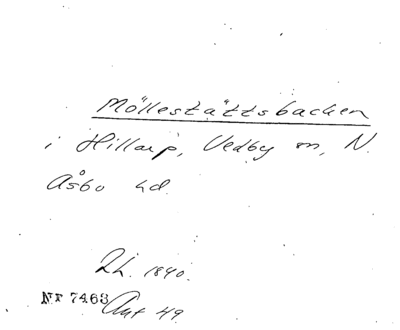 Möllestättsbacken
i Hillarp, Vedby sn, N.
Åsbo hd.
Lh. 1840.
NF 7463 Ant 49